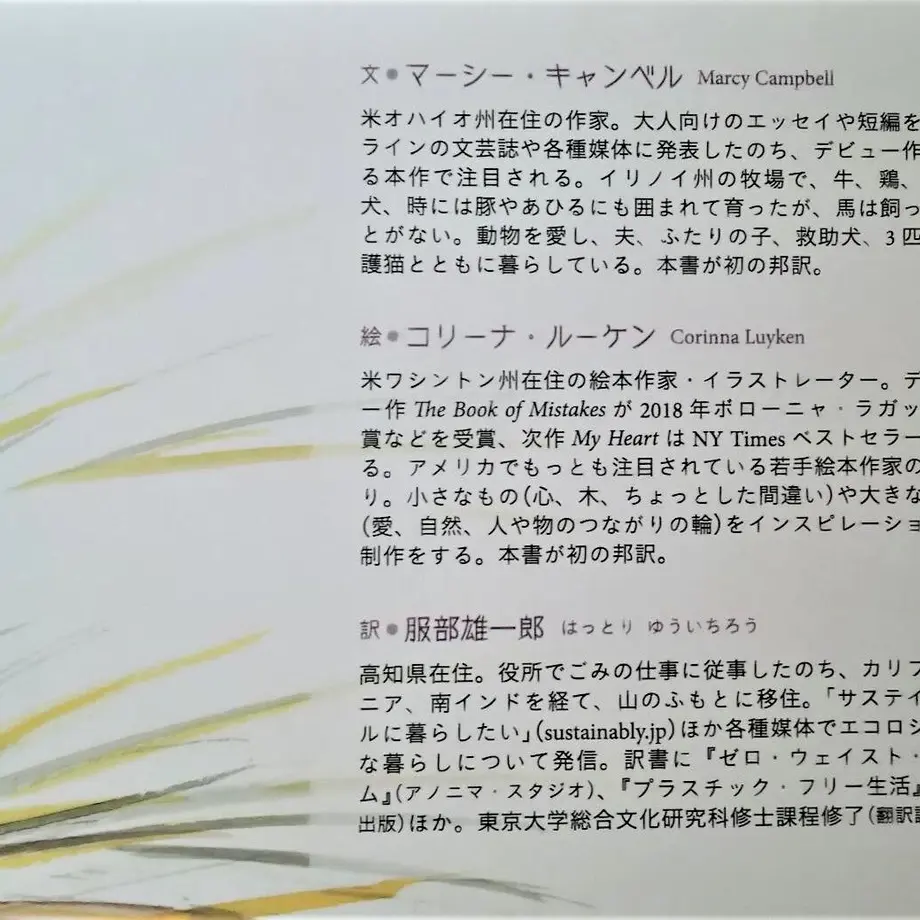 文●マーシー・キャンベル Marcy Campbell
米オハイオ州在住の作家。大人向けのエッセイや短編を
ラインの文芸誌や各種媒体に発表したのち、デビュー作
る本作で注目される。イリノイ州の牧場で、牛、鶏、
犬、時には豚やあひるにも囲まれて育ったが、馬は飼っ
とがない。動物を愛し、夫、ふたりの子、救助犬、3匹
護猫とともに暮らしている。本書が初の邦訳。
絵●コリーナ・ルーケン Corinna Luyken
米ワシントン州在住の絵本作家・イラストレーター。デ
ー作 The Book of Mistakes が 2018 年ボローニャ・ラガッ
賞などを受賞、次作 My Heart は NY Times ベストセラー
る。アメリカでもっとも注目されている若手絵本作家の
り。小さなもの(心、木、ちょっとした間違い)や大きな
(愛、自然、人や物のつながりの輪)をインスピレーショ
制作をする。本書が初の邦訳。
訳●服部雄一郎 はっとり ゆういちろう
高知県在住。役所でごみの仕事に従事したのち、カリフ
ニア、南インドを経て、山のふもとに移住。「サステイ
ルに暮らしたい」(sustainably.jp)ほか各種媒体でエコロジ
な暮らしについて発信。訳書に『ゼロ・ウェイスト・
ム』(アノニマ・スタジオ)、『プラスチック・フリー生活』
出版)ほか。東京大学総合文化研究科修士課程修了(翻訳